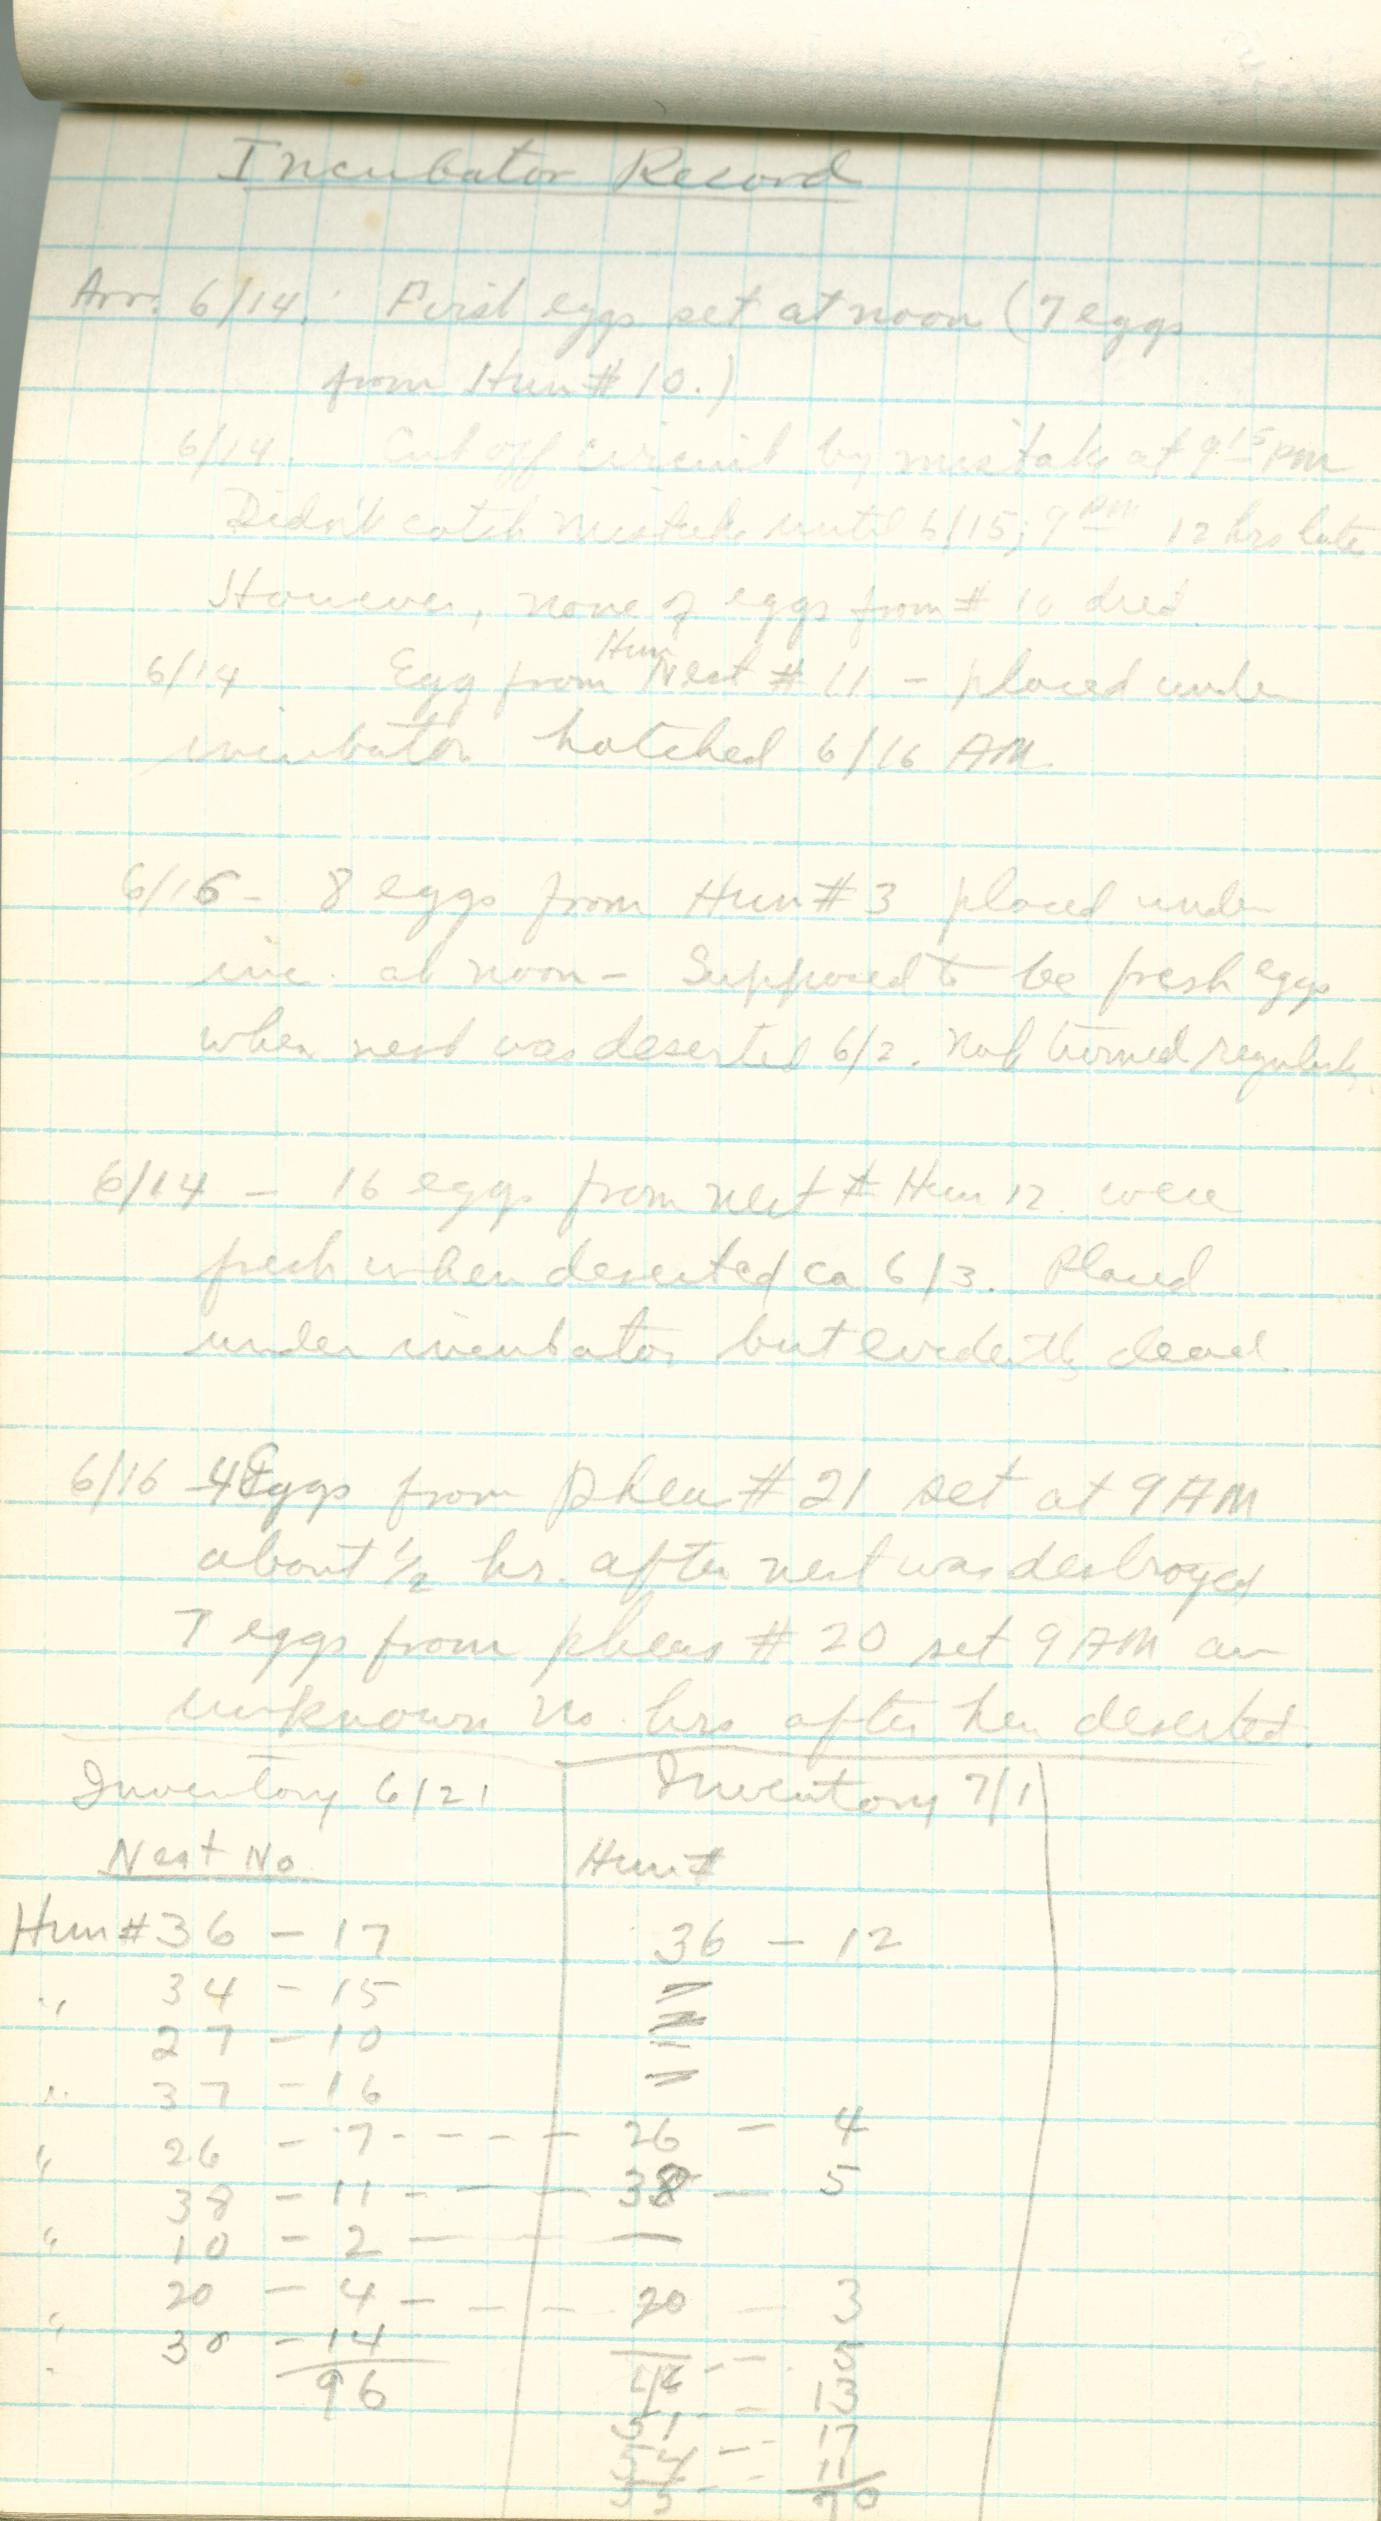 Incubator Record
Arr. 6/14: First eggs set at noon (7 eggs
from Hun # 10.)
6/14. Cut off circuit by mistake at 9 15 PM
Didn't catch mistake until 6/15, 9 PM 12 hrs late
However, none of eggs from # 10 died.
6/14 Egg from Hun Nest # 11 - placed under
incubator hatched 6/16 AM.
6/16 - 8 eggs from Hun # 3 placed under
inc. at noon - Supposed to be fresh eggs
when nest was deserted 6/2. Not turned regularly.
6/14 - 16 eggs from nest # Hun 12 were
fresh when deserted ca 6/3. Placed
under incubator but evidently dead.
6/16 - 4 Eggs from Pheas # 21 set at 9 AM
about 1/2 hr. after nest was destroyed
7 eggs from pheas # 20 set 9 AM an
unknown no. hrs after hen deserted.
Inventory 6/21 Inventory 7/1
Nest No. Hun #
Hun # 36 - 17 36 - 12
" 34 - 15
27 - 10
" 37 - 16
" 26 - 7 - - - - 26 - 4
38 - 11 - - - 38 - 5
" 10 - 2 - - —
20 - 4 - - - - 20 - 3
" 30 - 14 5
96 - - 13
51 - - 17
54 - - 11
- - 70